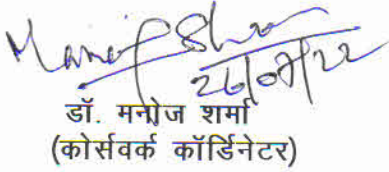 Manoj Sharma
26/07/22
डॉ. मनोज शर्मा
(कोर्सवर्क कॉर्डिनेटर)